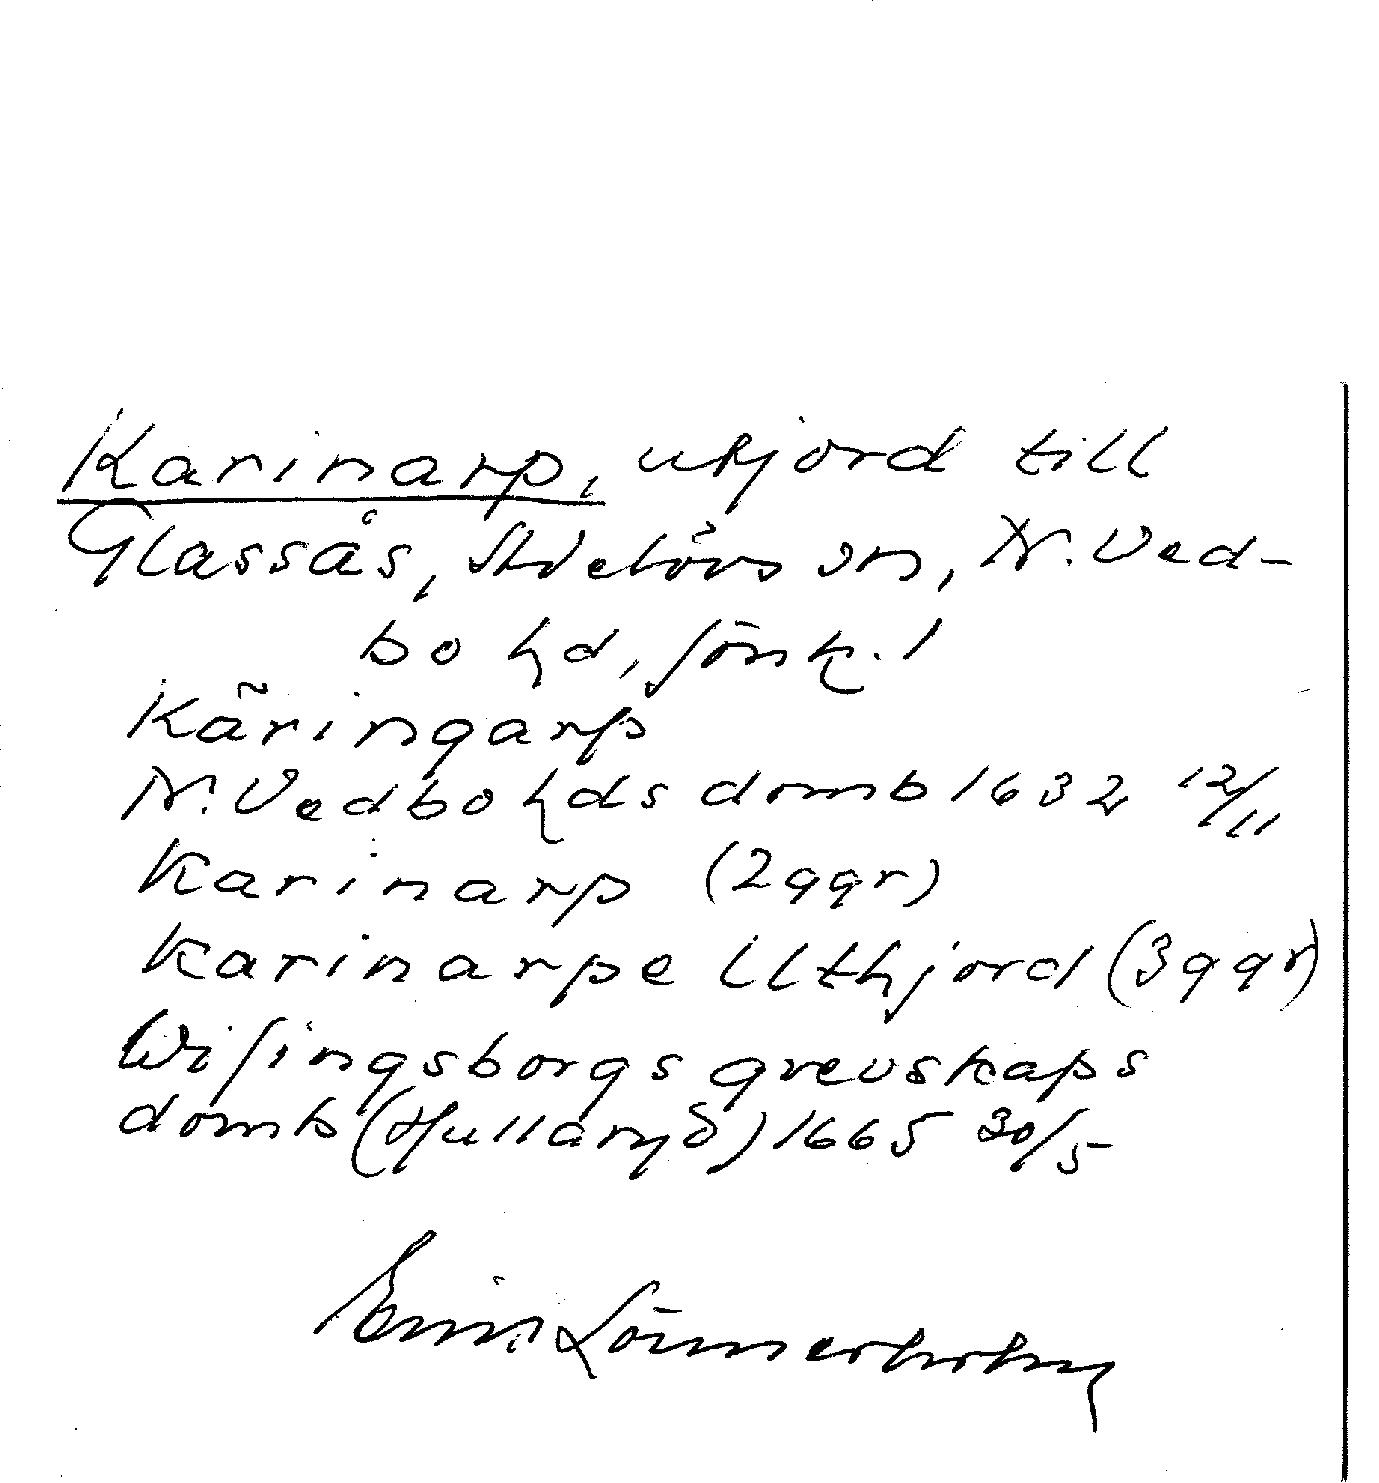 Karinarp, utjord till
Glassås, Stvetörs sn, N. Ved-
bo hd, Jönk. l
Käringarp
N. Vedbo hds domb 1632 12/11
Karinarp (2 ggr)
Karinarpe Uthjord (3 ggr)
Wisingsborgs grevskaps
domb (Hullaryd) 1665 30/5
Lönnerholm